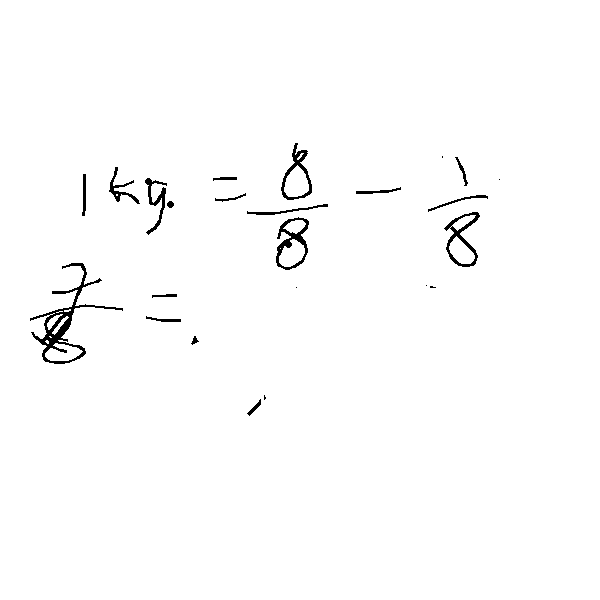 1 kg. = 8/8 - 1/8
7/8 =